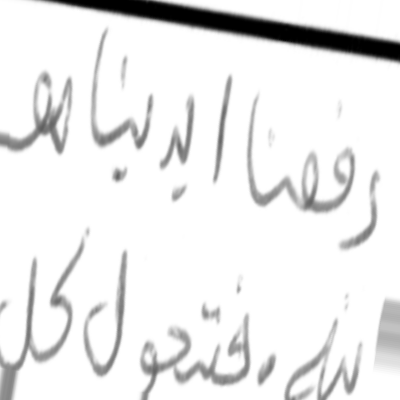 رفعنا ايدينا
لله، فتحول كل